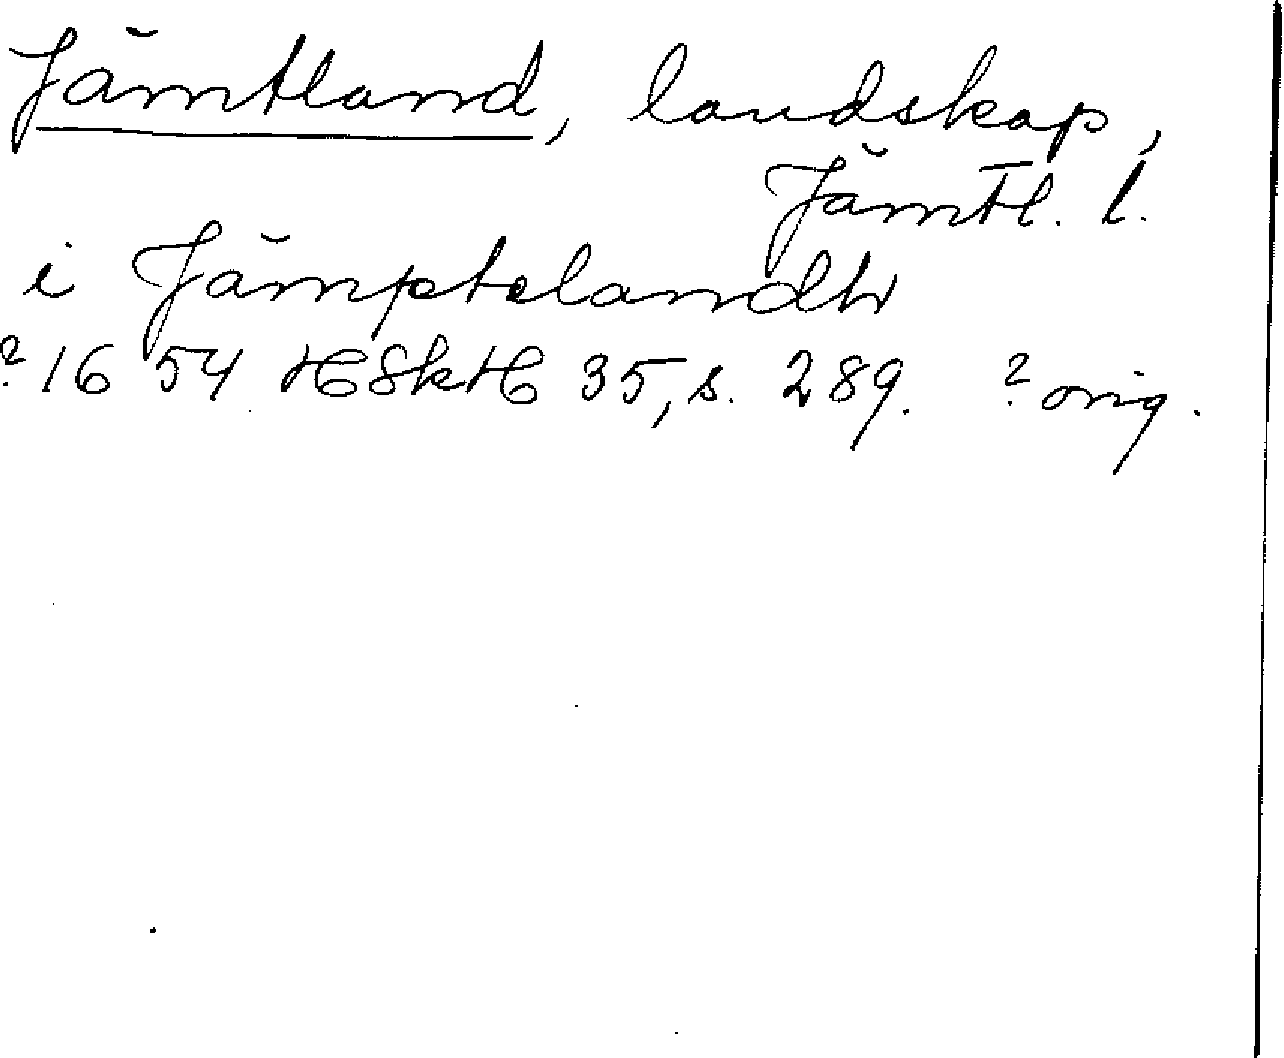 Jämtland, landskap,
Jämtl. l.
i Jämptelandh
? 1654 HSkH 35, s. 289. ? orig.